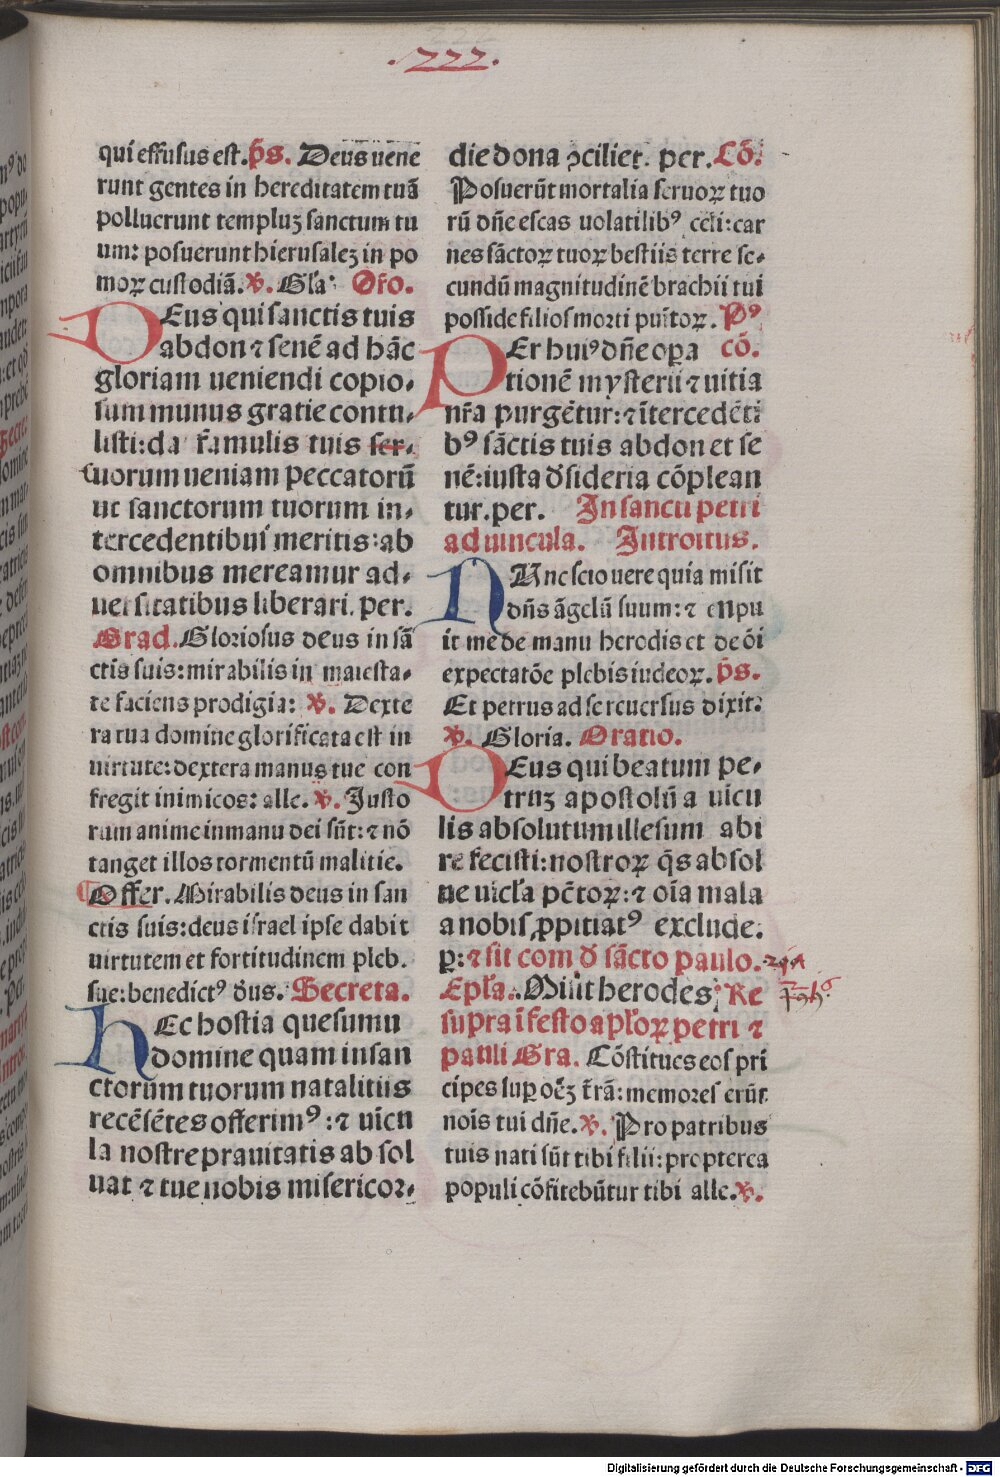 .222.
qui effusus est. p̄s. Deus uene
runt gentes in hereditatem tuā
polluerunt templuꝫ sanctum tu
um: posuerunt hierusaleꝫ in po
moꝝ custodiā. ℣. Gl̄a Oŕo.
DEus qui sanctis tuis
abdon ⁊ senē ad hāc
gloriam ueniendi copio⸗
sum munus gratie contu⸗
listi: da famulis tuis ser⸗
suorum ueniam peccatorū
ut sanctorum tuorum in⸗
tercedentibus meritis: ab
omnibus mereamur ad⸗
uersitatibus liberari. per.
Grad. Gloriosus deus in sā
ctis suis: mirabilis in maiesta⸗
te faciens prodigia: ℣. Dexte
ra tua domine glorificata est in
uirtute: dextera manus tue con
fregit inimicos: alle. ℣. Iusto
rum anime in manu dei sūt: ⁊ nō
tanget illos tormentū malitie.
Offer. Mirabilis deus in san
ctis suis: deus israel ipse dabit
uirtutem et fortitudinem pleb.
sue: benedictꝰ d̄us. Secreta.
HEc hostia quesumu
domine quam in san
ctorum tuorum natalitiis
recēsētes offerimꝰ: ⁊ uīcu
la nostre prauitatis absol
uat ⁊ tue nobis misericor⸗
die dona ꝯciliet. per. Cō.
Posuerūt mortalia seruoꝝ tuo
rū dn̄e escas uolatilibꝰ celi: car
nes sāctoꝝ tuoꝝ bestiis terre se⸗
cundū magnitudinē brachii tui
posside filios morti punitoꝝ. Pꝰ
PEr huiꝰ dn̄e opa cō.
tionē mysterii ⁊ uitia
nr̄a purgētur: ⁊ ītercedēti
bꝰ sāctis tuis abdon et se
nē: iusta dsideria cōplean
tur. per. In sancti petri
ad uincula. Introitus.
NUnc scio uere quia misit
dn̄s āgelū suum: ⁊ eripu
it me de manu herodis et de ōi
expectatōe plebis iudeoꝝ. p̄s.
Et petrus ad se reuersus dixit:
℣. Gloria. Oratio.
DEus qui beatum pe⸗
truꝫ apostolū a uicu
lis absolutum illesum abi
re fecisti: nostroꝝ q̄s absol
ue uicl̄a pc̄toꝝ: ⁊ oīa mala
a nobis ꝓpitiatꝰ exclude.
ꝑ: ⁊ sit com d sācto paulo.
Epl̄a. Misit herodes: Re
supra ī festo apl̄oꝝ petri ⁊
pauli Gra. Cōstitues eos pri
cipes suꝑ oēꝫ tr̄ā: memores erūt
nois tui dn̄e. ℣. Pro patribus
tuis nati sūt tibi filii: propterea
populi cōfitebūtur tibi alle. ℣.
Digitalisierung gefördert durch die Deutsche Forschungsgemeinschaft - DFG